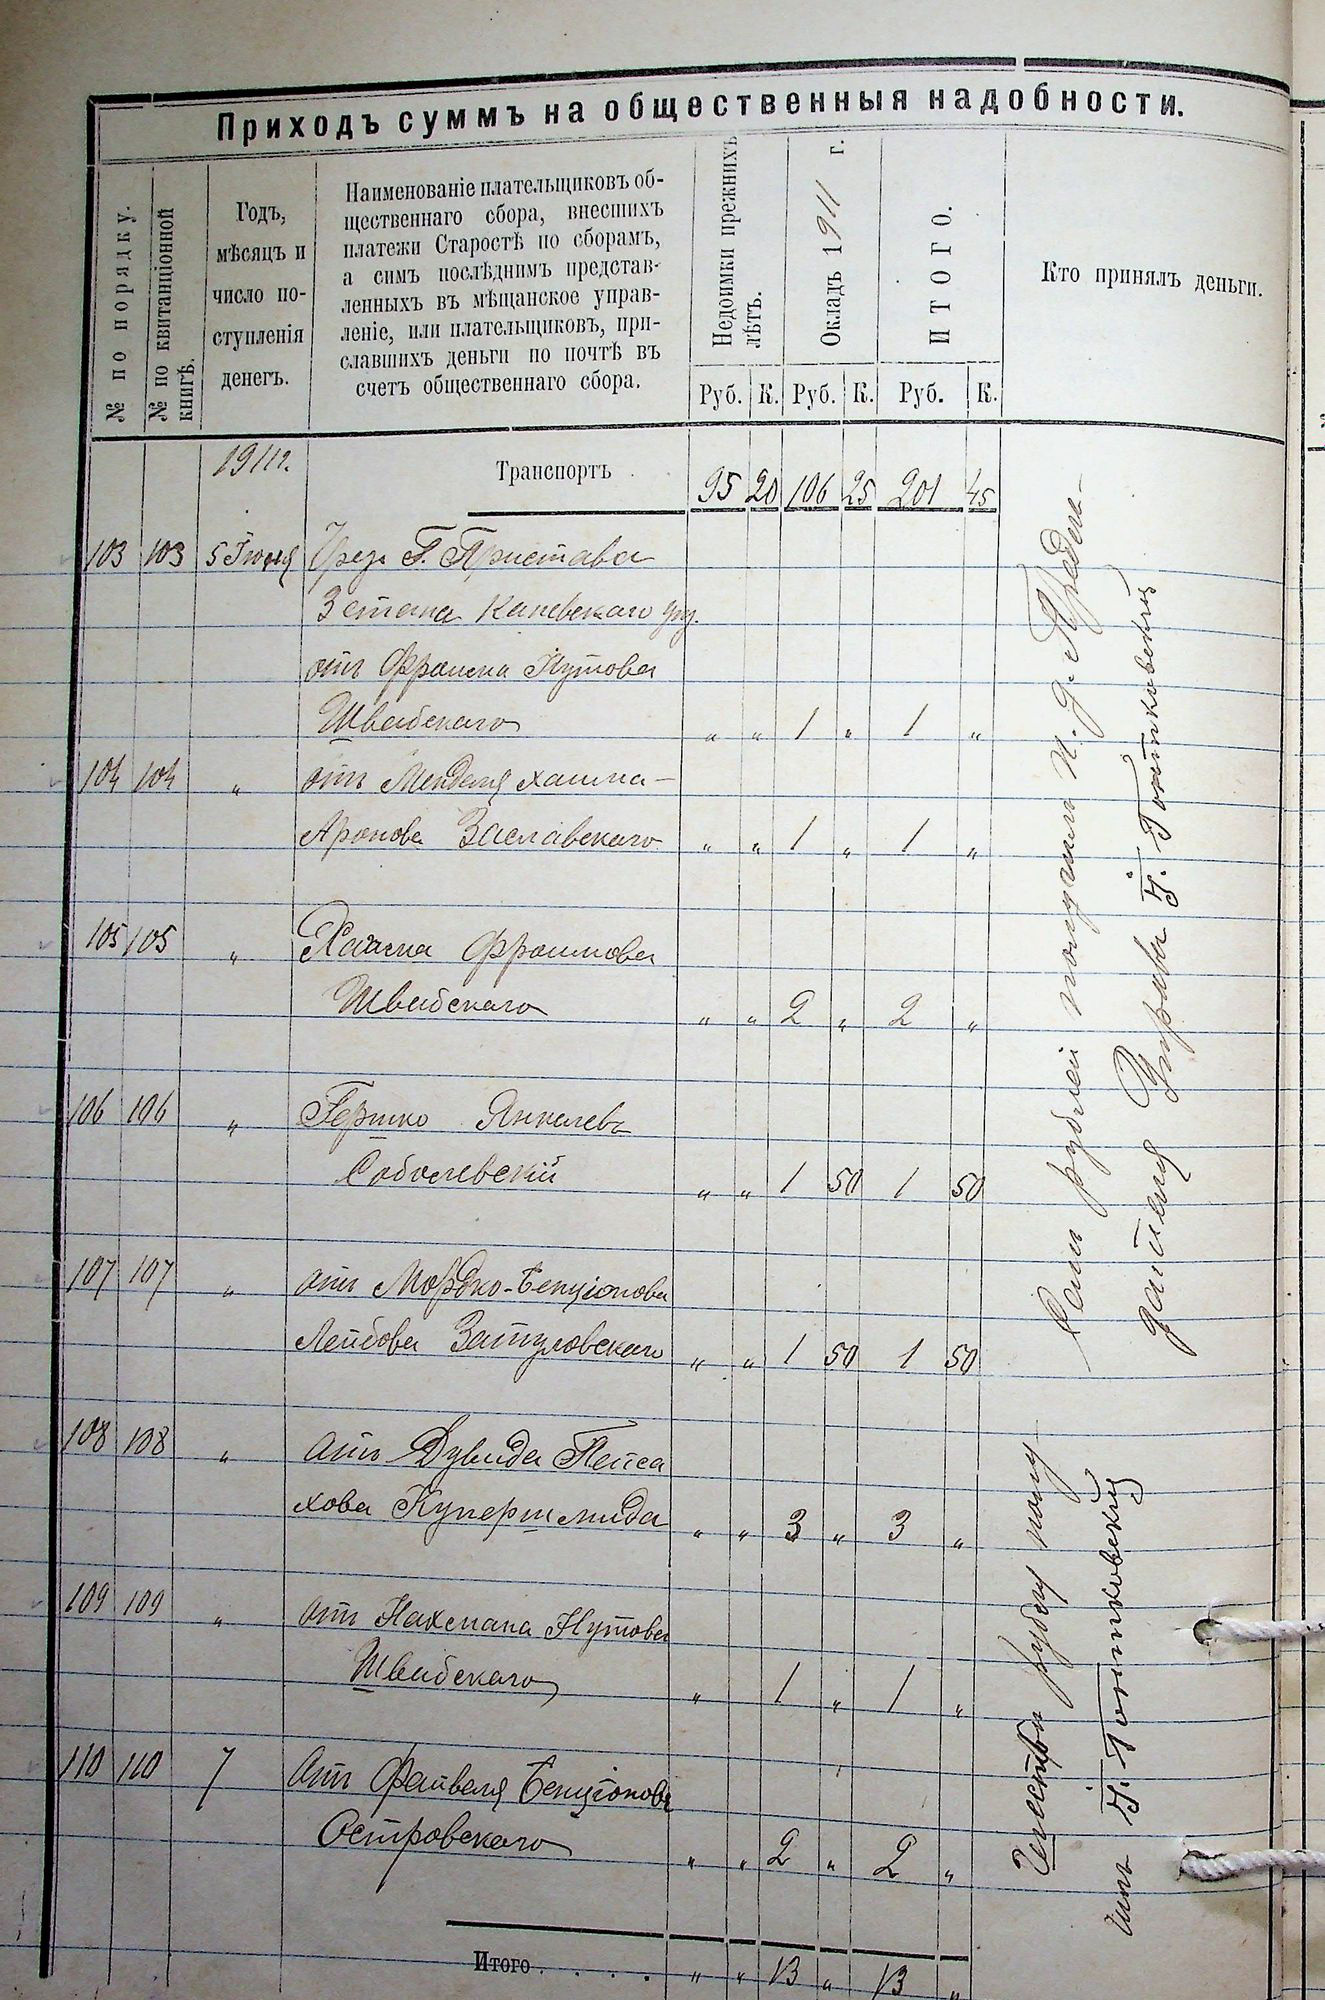 Приходъ суммъ на общественныя надобности.
№ по порядку.
№ по квитанціонной
книгѣ.
Годъ,
мѣсяцъ и
число по-
ступленія
денегъ.
Наименованіе плательщиковъ об-
щественнаго сбора, внесшихъ
платежи Старостѣ по сборамъ,
а симъ послѣднимъ представ-
ленныхъ въ мѣщанское управ-
леніе, или плательщиковъ, при-
славшихъ деньги по почтѣ въ
счетъ общественнаго сбора.
Недоимки прежнихъ
лѣтъ.
Окладъ 1911 г.
ИТОГО.
Кто принялъ деньги.
Руб. К. Руб. К. Руб. К.
1911г. Транспортъ 95 20 106 25 201 45
103 103 5 Іюня Чрез Г. Пристава
3 стана Каневскаго уѣз.
отъ Фроима Нутова
Швабскаго „ „ 1 „ 1 „
104 104 „ отъ Менделя Хаима-
Аронова Заславскаго „ „ 1 „ 1 „
105 105 „ Хаима Фроимова
Швабскаго „ „ 2 „ 2 „
106 106 „ Гершко Янкелевъ
Соболевскій „ „ 1 50 1 50
107 107 „ отъ Мордко-Бенціонова
Лейбова Затуловскаго „ „ 1 50 1 50
108 108 „ отъ Дувида Пейса
хова Купершмида „ „ 3 „ 3 „
109 109 „ отъ Нахмана Нутова
Швабскаго „ 1 „ 1 „
110 110 7 отъ Файвеля Бенціонова
Островскаго „ „ 2 „ 2 „
Итого . . . . „ „ 13 „ 13 „
Семь рублей получилъ И. д. Предсѣ-
дателя Управы
Шесть рубл. полу-
чилъ